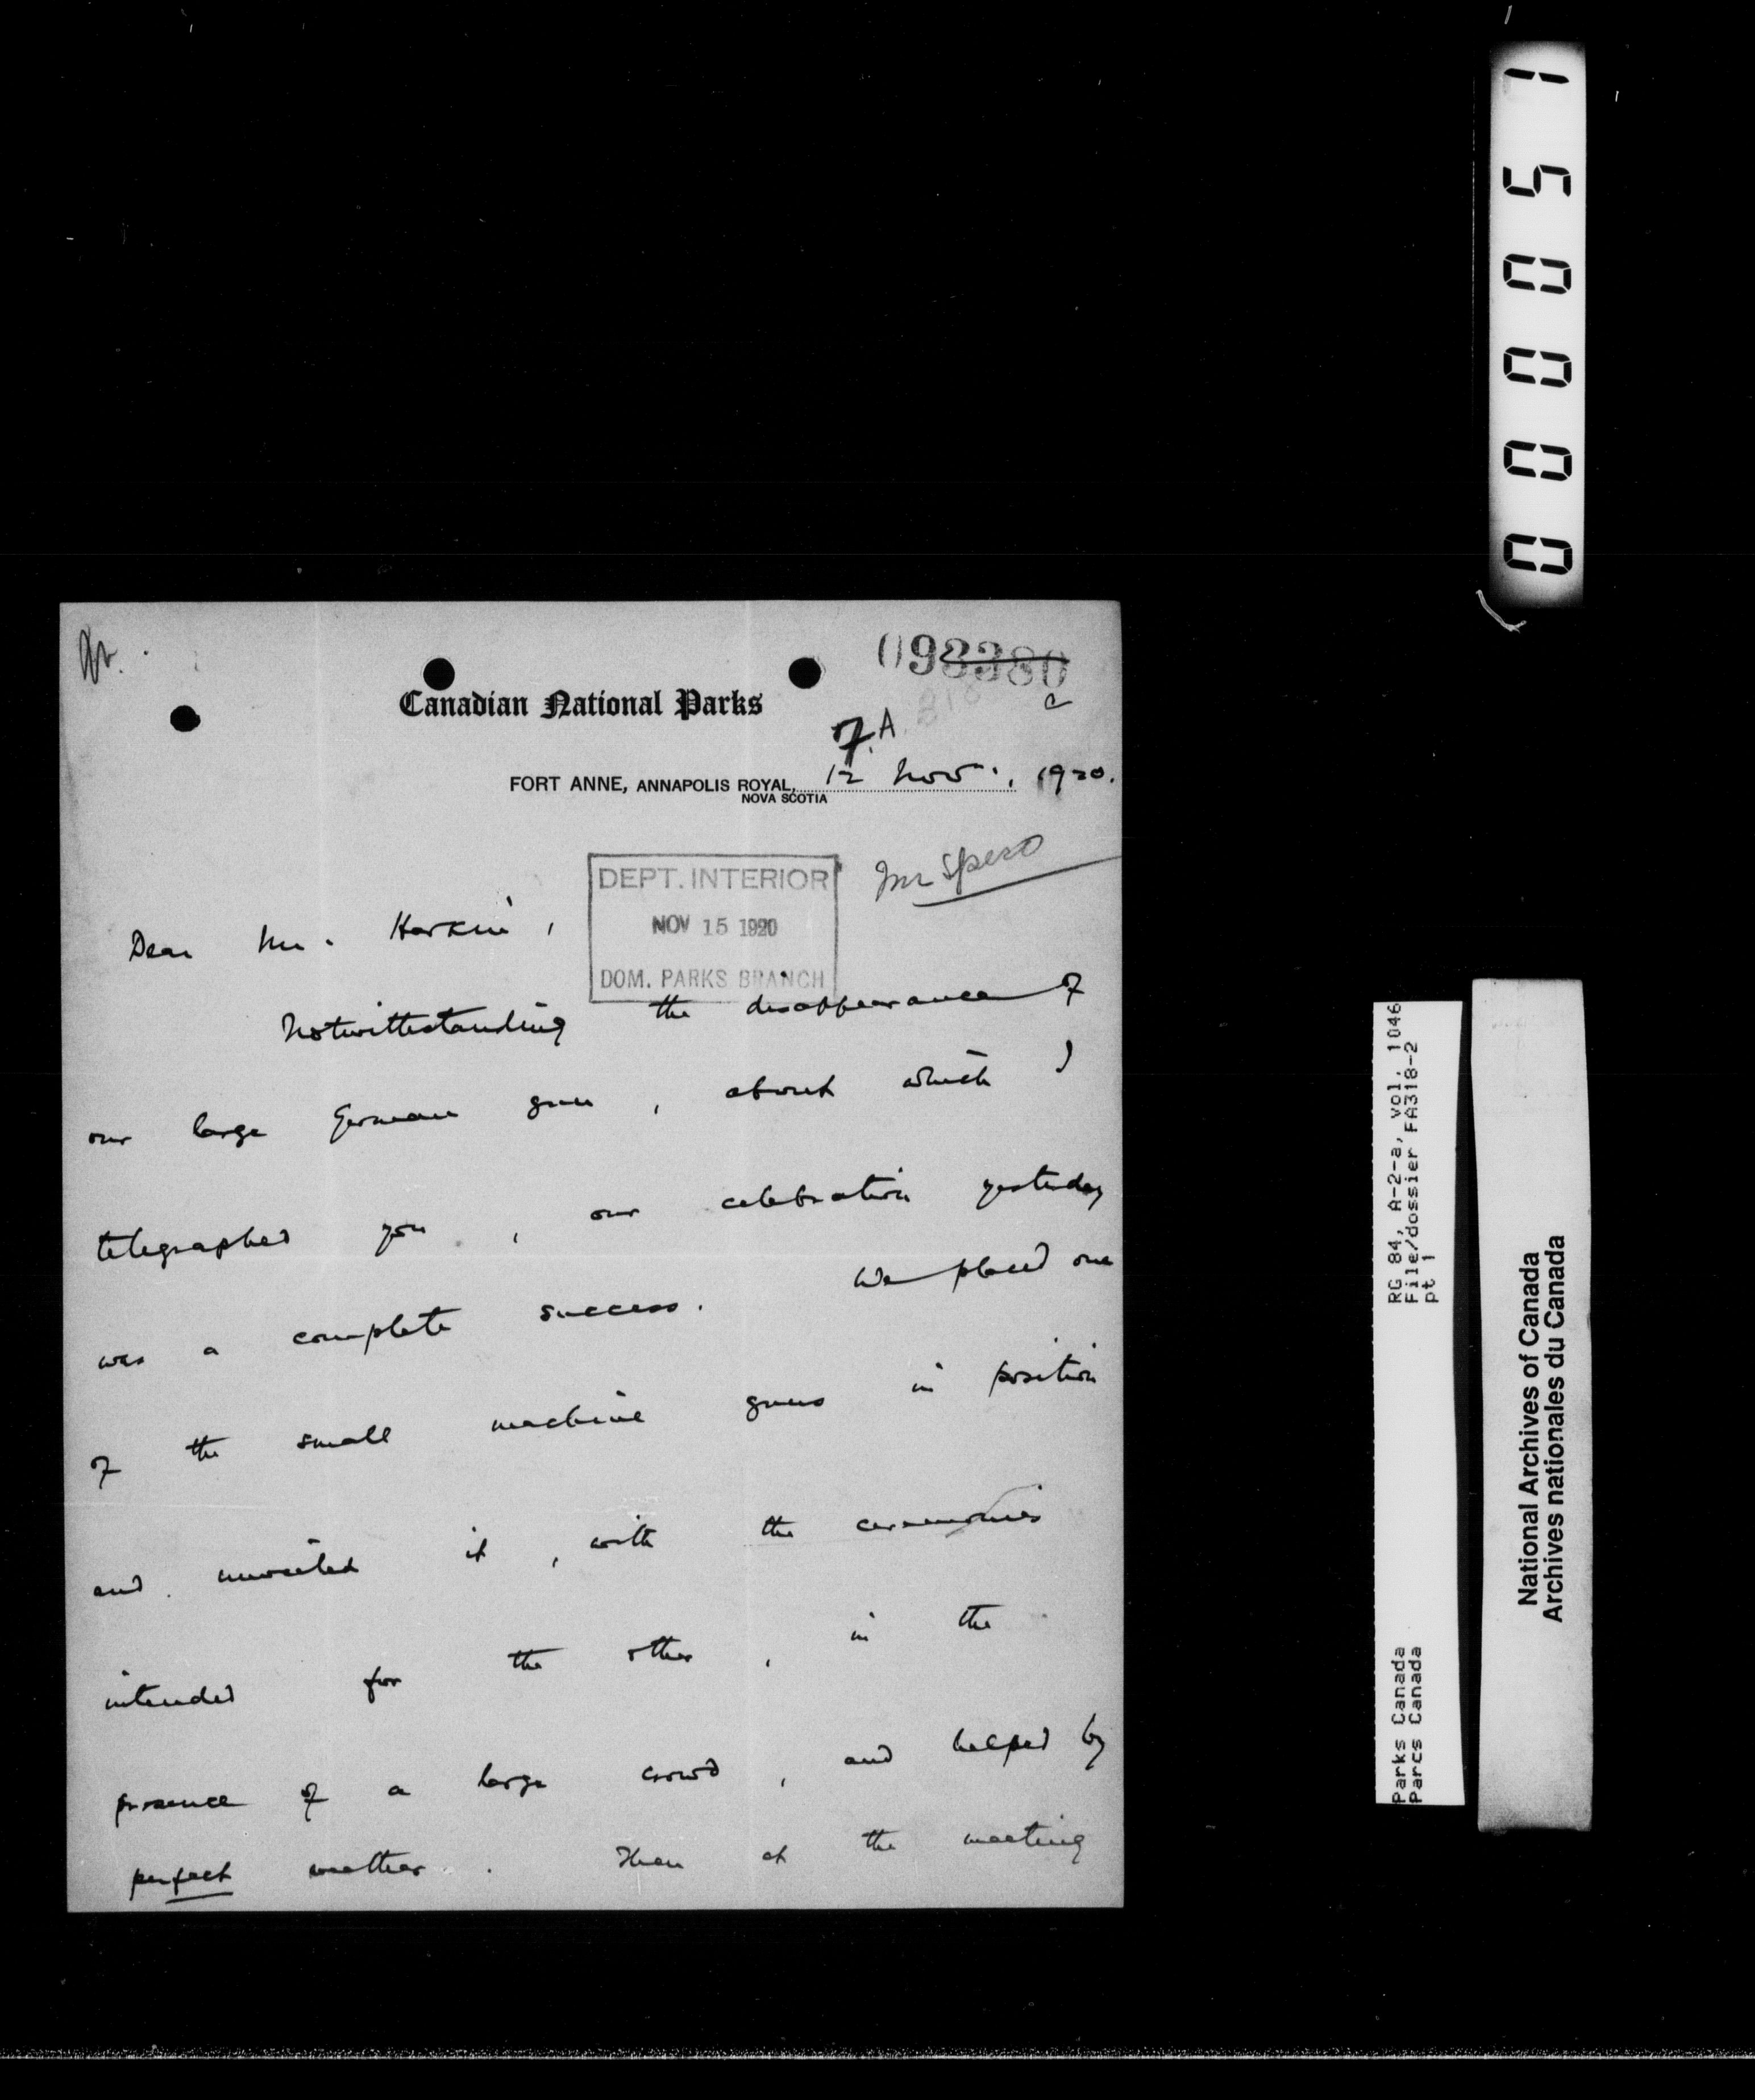 098380
Canadian National Parks
7.A
FORT ANNE, ANNAPOLIS ROYAL, 12 Nov., 1920.
NOVA SCOTIA
Mr Spero
DEPT. INTERIOR
NOV 15 1920
DOM. PARKS BRANCH
Dear Mr. Harkin,
Notwithstanding the disappearance of
our large German gun, about which I
telegraphed you, our celebration yesterday
was a complete success. We placed one
of the small machine guns in position
and unveiled it, with the ceremonies
intended for the other, in the
presence of a large crowd, and helped by
perfect weather. Then at the meeting
000051
RG 84, A-2-a, vol. 1046
File/dossier FA318-2
pt 1
Parks Canada
Parcs Canada
National Archives of Canada
Archives nationales du Canada